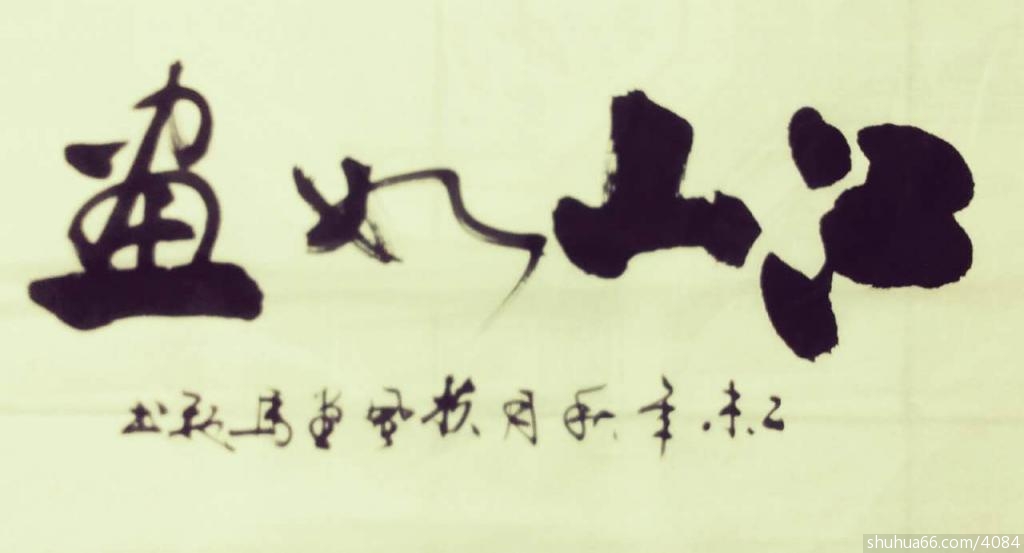 江山如畫
乙未年秋月牧風堂馬歌書
shuhua66.com/4084